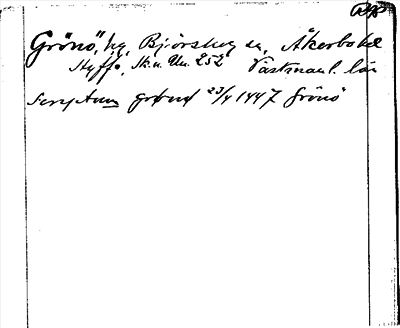 Grönö, hg, Björskog sn, Åkerbo hd
Styffe, Sk. u. Un. 252 Västmanl. län
scriptum grönö 23/4 1447 Grönö